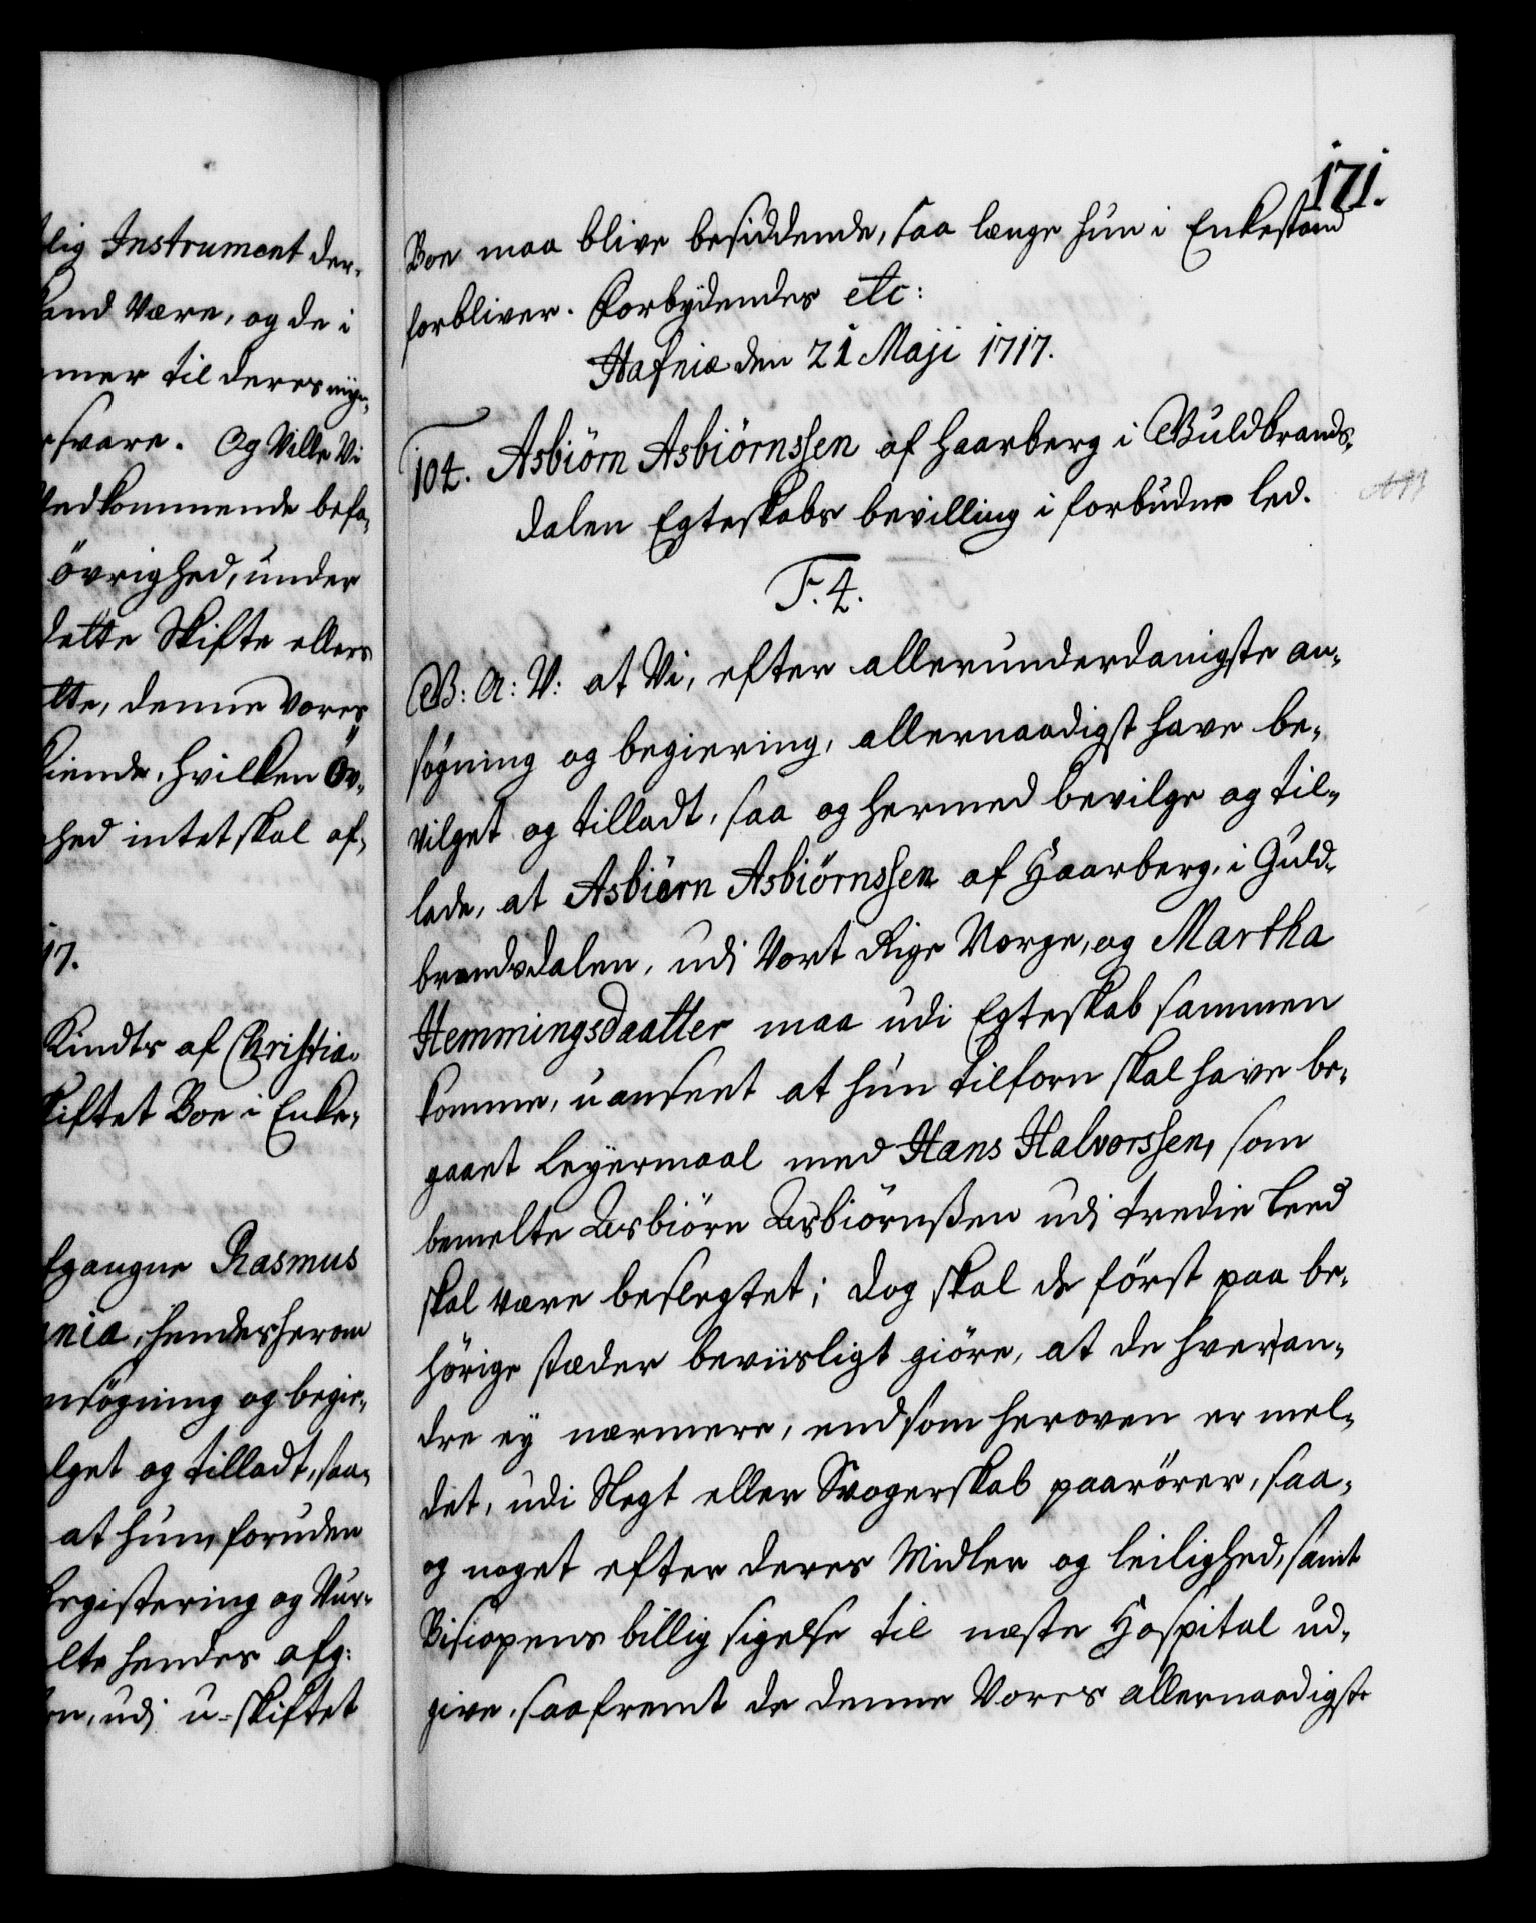 lig Instrument der-
and være, og de i
mer til deres nye,
svare. Og Ville Vi
Vedkommende befa,
övrighed, under
dette Skifte ellers
tte, denne vores
kiende, hvilken Öv,
hed intet skal af,
17.
Kindts af Christia-
kiftet Boe i Enke,
fgangne Rasmus
nia, hendes herom
nsögning og begie,
lget og tilladt, saa,
at hun, foruden
Registering og Vur-
lte hendes afg:
en, udj u-skiftet
171.
Boe maa blive besiddende, saa lenge hun i Enkestand
forbliver. Forbydendes etc:
Hafniæ den 21 Maji 1717.
104. Asbiörn Asbiörnssen af Haarberg i Guldbrands,
dalen Egteskabs bevilling i forbudne led.
F. 4.
G: A: V: at Vi, efter allerunderdanigste an,
søgning og begiering, allernaadigst have be,
vilget og tilladt, saa og hermed bevilge og til,
lade, at Asbiörn Asbiörnssen af Haarberg, i Guld,
brandsdalen, udj Vort Rige Norge, og Martha
Hemmingsdaatter maa udi Egteskab sammen
komme, uanseet at hun tilforn skal have be,
gaaet Leyermaal med Hans Halvorssen, som
bemelte Asbiörn Asbiörnßen udj tredie Leed
skal være beslegtet; dog skal de först paa be,
hörige stæder beviisligt giöre, at de hveran,
dre ey nærmere, end som heroven er mel,
det, udi Slegt eller Svogerskab paarörer, saa,
og noget efter deres Midler og leilighed, samt
Bisiopens billig sigelse til næste Hospital ud,
give. saafremt de denne Vores allernaadigste